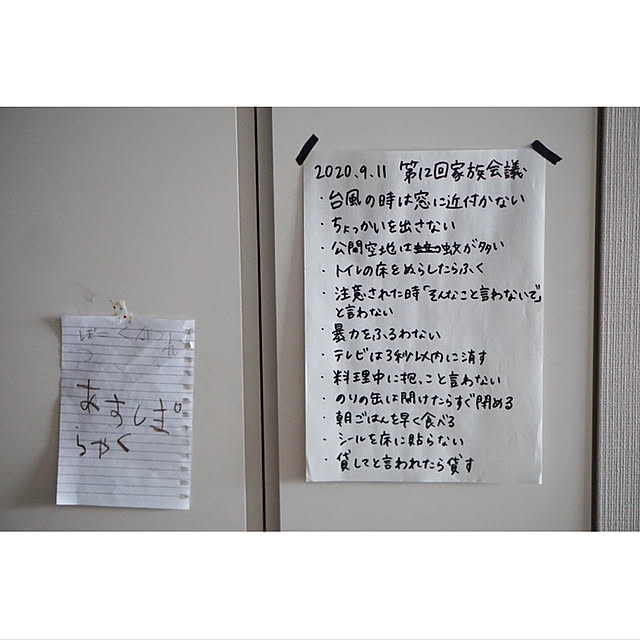 2020.9.11 第12回家族会議
・台風の時は窓に近付かない
・ちょっかいを出さない
・公開空地は蚊が多い
・トイレの床をぬらしたらふく
・注意された時「そんなこと言わないで」
と言わない
・暴力をふるわない
・テレビは3秒以内に消す
・料理中に抱っこと言わない
・のりの缶は開けたらすぐ閉める
・朝ごはんを早く食べる
・シールを床に貼らない
・貸してと言われたら貸す
あすしぱ
らやく